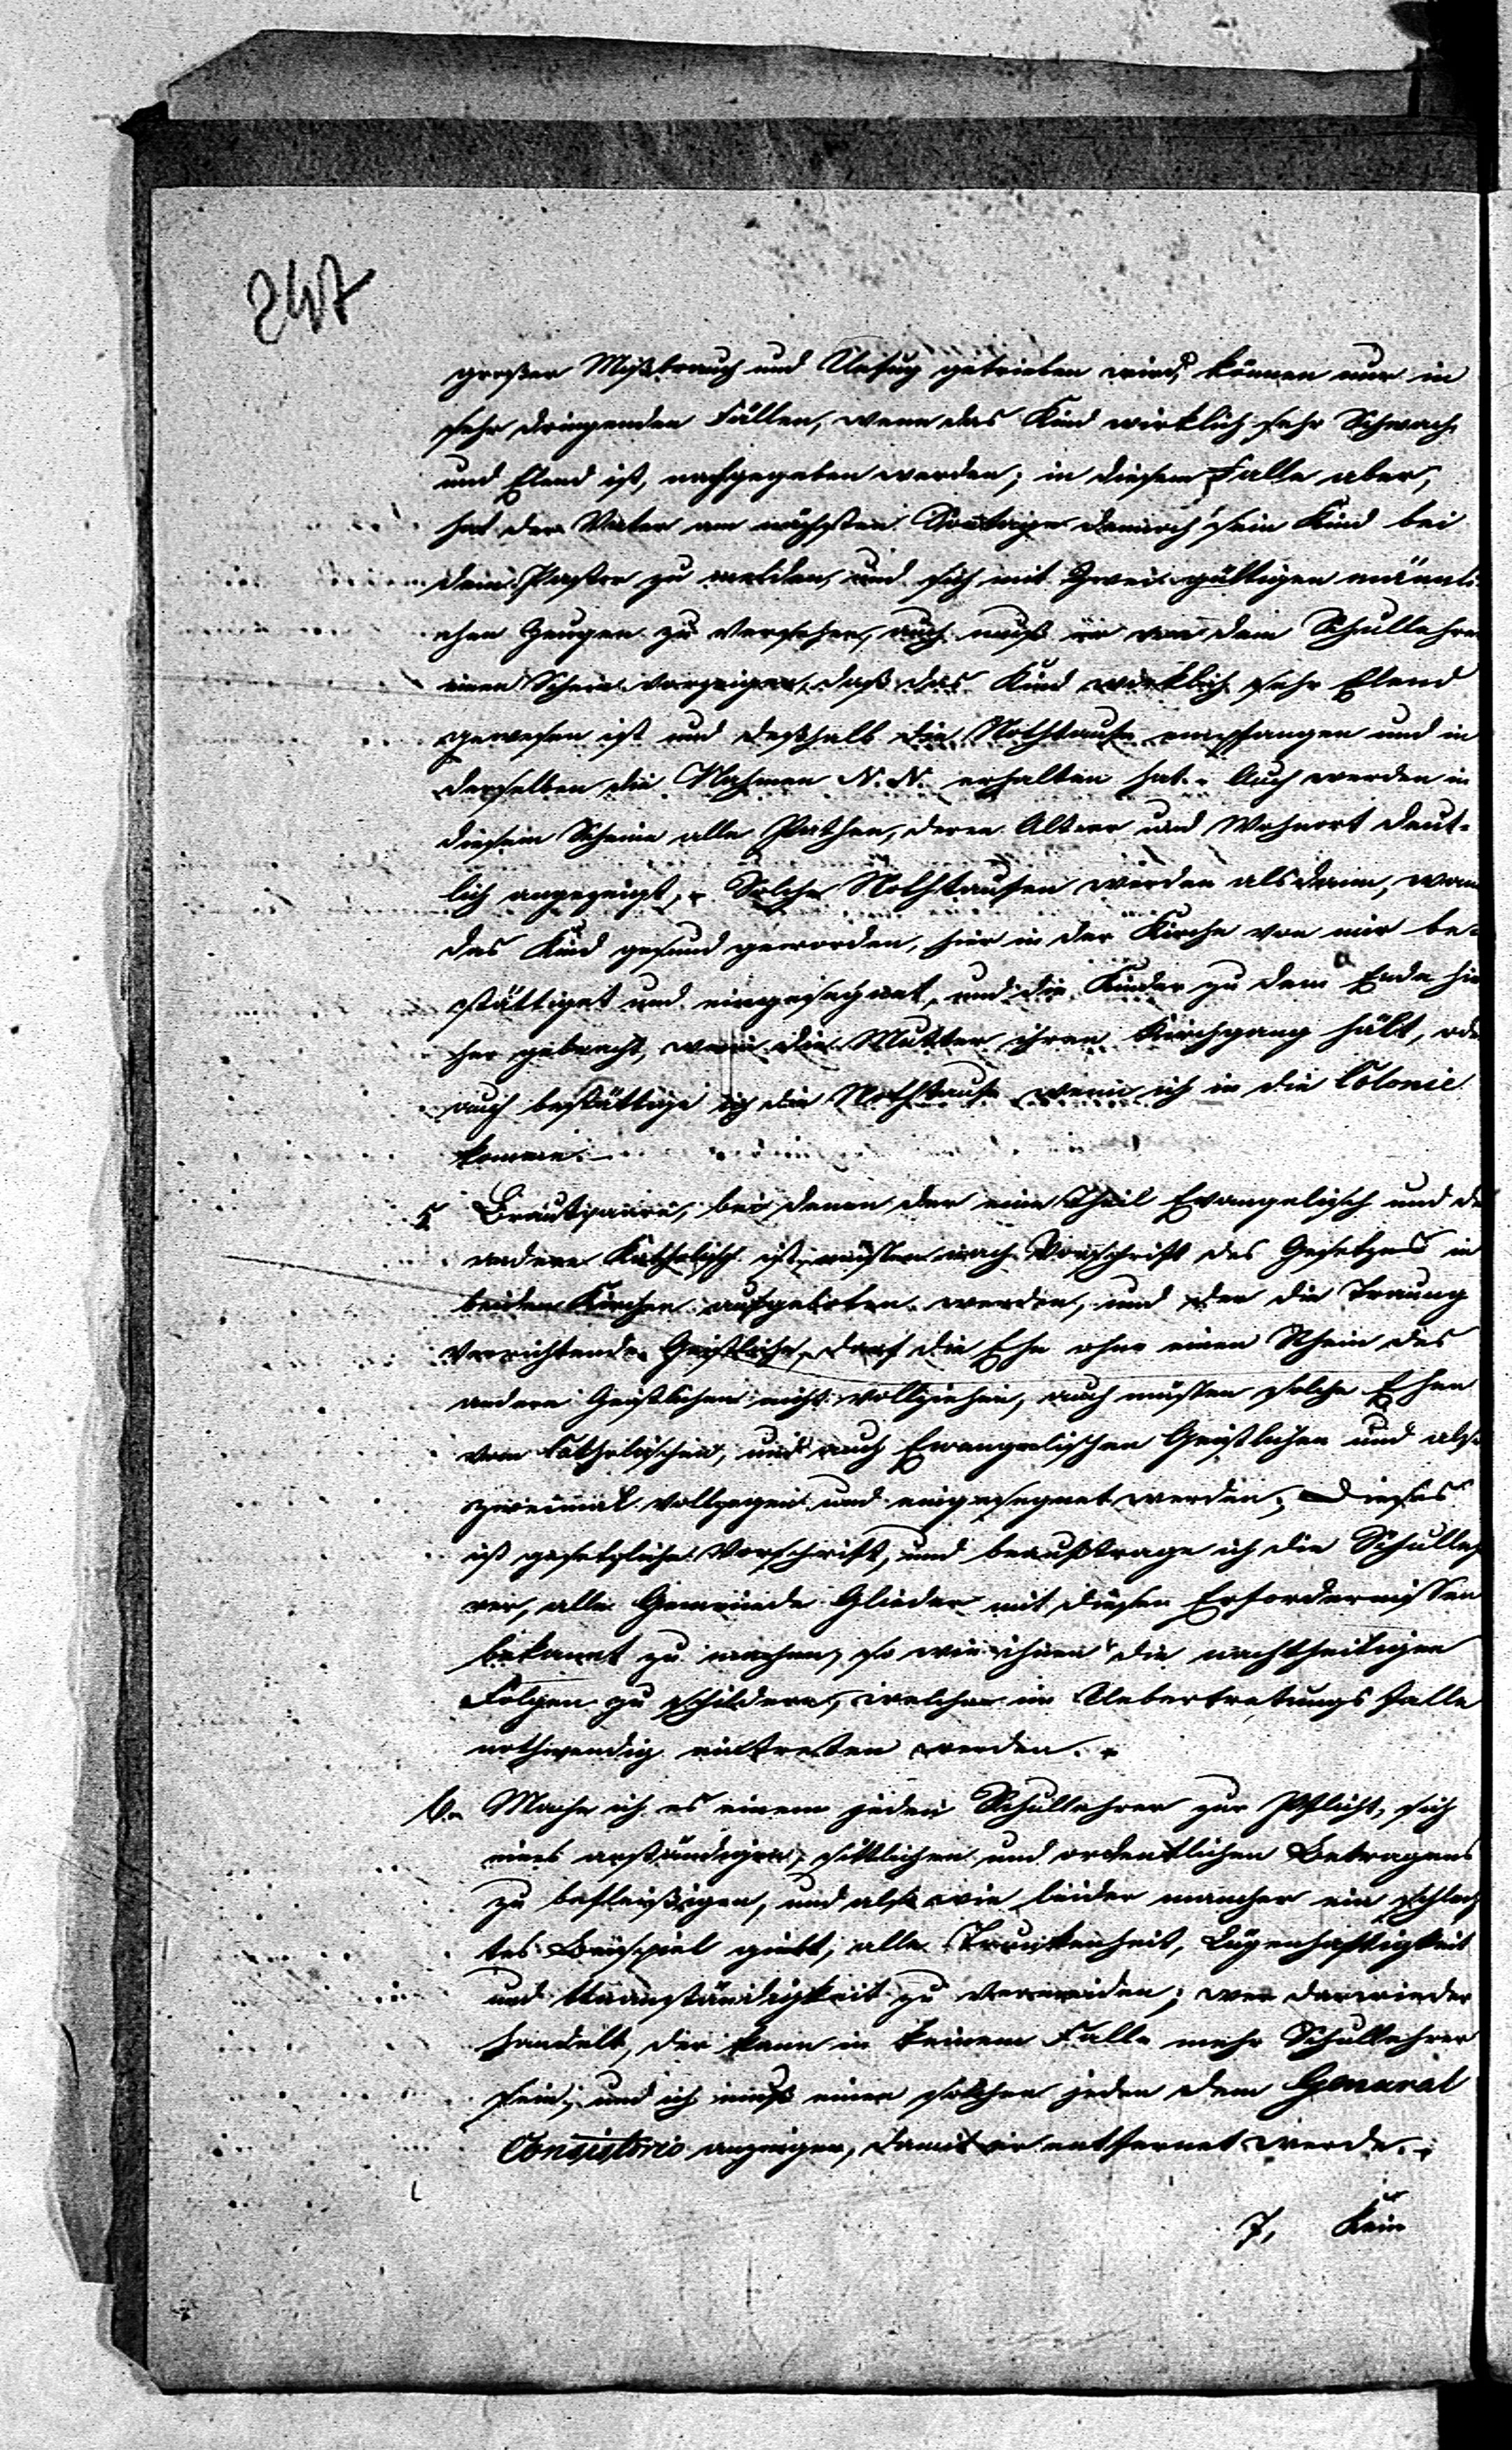 247
großer Mißbrauch und Unfug getrieben wird, können nur in
sehr dringenden Fällen, wenn das Kind wirklich sehr Schwach
und Elend ist, nachgegeben werden; in diesem Falle aber,
hat der Vater am nächsten Sontage darnach sein Kind bei
dem Pastor zu melden, und sich mit Zwei gültigen männli-
chen Zeugen zu versehen, auch muß er von dem Schullehrer
einen Schein vorzeigen, daß das Kind wirklich sehr Elend
gewesen ist und deßhalb die Nothtaufe empfangen und in
derselben die Nahmen N. N. erhalten hat. Auch werden in
diesem Scheine alle Pathen, deren Alter und Wohnort deut-
lich angezeigt, Solche Nothtaufen werden alsdann, wenn
das Kind gesund geworden, hier in der Kirche von mir be-
stättiget und eingesegnet, und die Kinder zu dem Ende hie
her gebracht, wenn die Mutter ihren Kirchgang hält, oder
auch bestättige ich die Nothtaufe wenn ich in die Colonie
komme.
5. Brautpaare, bei denen der eine Theil Evangelisch und der
andere Katholisch ist, müssen nach Vorschrift des Gesetzes in
beiden Kirchen aufgeboten werden, und der die Trauung
verrichtende Geistliche, darf die Ehe ohne einen Schein des
andern Geistlichen nicht vollziehen, auch müssen solche Ehen
vom Katholischen, und auch Evangelischen Geistlichen und also
zweimal vollzogen und eingesegnet werden; Dieses
ist gesetzliche Vorschrift, und beauftrage ich die Schulleh
rer, alle Gemeinde Glieder mit diesen Erfordernissen
bekannt zu machen, so wie ihnen die nachtheiligen
Folgen zu schildern, welche im Uebertretungs Falle
nothwendig eintreten werden.
6. Mache ich es einem jeden Schullehrer zur Pflicht, sich
eines anständigen, sittlichen und ordentlichen Betragens
zu befleißigen, und also wie leider mancher ein schlech
tes Beispiel giebt, alle Trunkenheit, Lügenhaftigkeit
und Unanständigkeit zu vermeiden; wer darwieder
handelt, der kann in keinem Falle mehr Schullehrer
sein, und ich muß einen solchen jeden dem General
Consistorio anzeigen, damit er entfernet werde.
7, Kein